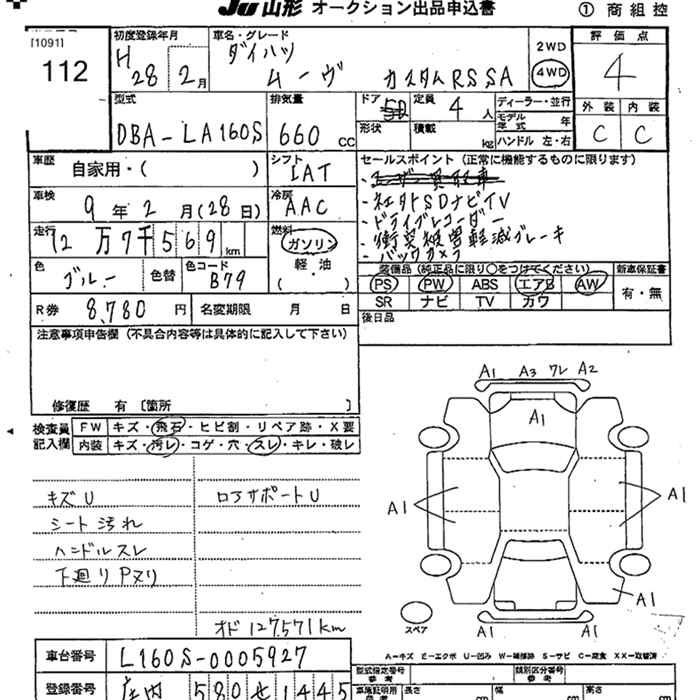 JU 山形 オークション出品申込書 ① 商組控
[1091] 112
初度登録年月 H 28年 2月
車名・グレード ダイハツ ムーヴ カスタム RS SA
2WD 4WD
評価点 4
外装 C 内装 C
型式 DBA-LA160S
排気量 660 cc
ドア 5D
定員 4人
形状 積載 kg
ディーラー・並行
モデル年式 年
ハンドル 左・右
車歴 自家用・( )
シフト IAT
車検 9年2月(28日)
冷房 AAC
走行 12万7千569km
燃料 ガソリン 軽油 ( )
色 ブルー 色替 色コード B79
R券 8,780円
名変期限 月 日
セールスポイント(正常に機能するものに限ります)
・社外SDナビTV
・ドライブレコーダー
・衝突被害軽減ブレーキ
・バックカメラ
装備品(純正品に限り○をつけてください)
PS PW ABS エアB AW
SR ナビ TV カワ
新車保証書 有・無
後日品
注意事項申告欄(不具合内容等は具体的に記入して下さい)
修復歴 有〔箇所 〕
検査員記入欄
FW キズ・飛石・ヒビ割・リペア跡・X要
内装 キズ・汚レ・コゲ・穴・スレ・キレ・破レ
キズU
シート汚れ
ハンドルスレ
下廻りPヌリ
ロアサポートU
オド 127,571km
A1 A3 ワレ A2
A1
A1 A1
A1
A1 A1
スペア
A－キズ E－エクボ U－凹み W－補修跡 S－サビ C－腐食 XX－取替済
車台番号 L160S-0005927
型式指定番号 参考
類別区分番号 参考
登録番号 庄内 580 せ 1445
車庫証明用 長さ cm 幅 cm 高さ cm